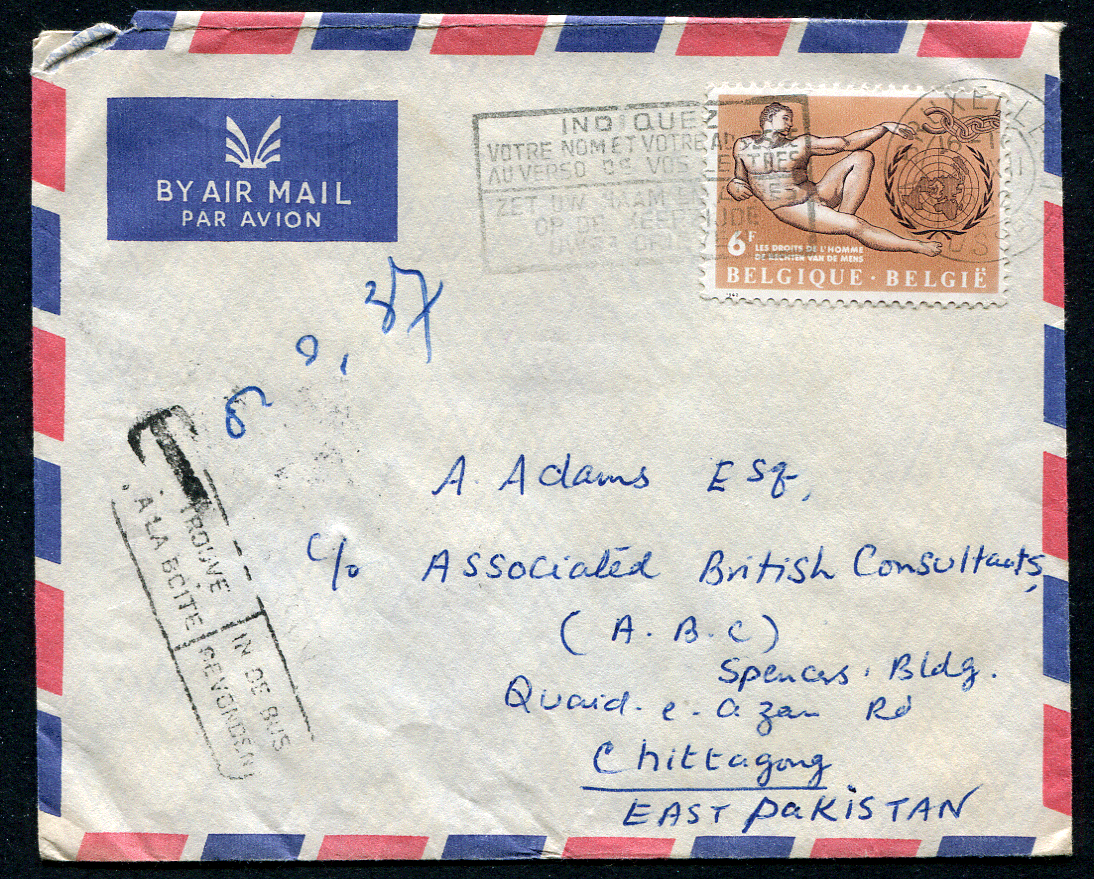 BY AIR MAIL
PAR AVION
INDIQUEZ
VOTRE NOM ET VOTRE ADRESSE
AU VERSO DE VOS LETTRES
ZET UW NAAM EN ADRES
OP DE KEERZIJDE
BRUXELLES
6F
LES DROITS DE L'HOMME
DE RECHTEN VAN DE MENS
BELGIQUE · BELGIË
37
T
TROUVÉ
À LA BOÎTE
IN DE BUS
GEVONDEN
A. Adams Esq,
C/o Associated British Consultants,
(A. B. C)
Spencers. Bldg.
Quaid. e. azam Rd
Chittagong
EAST PAKISTAN